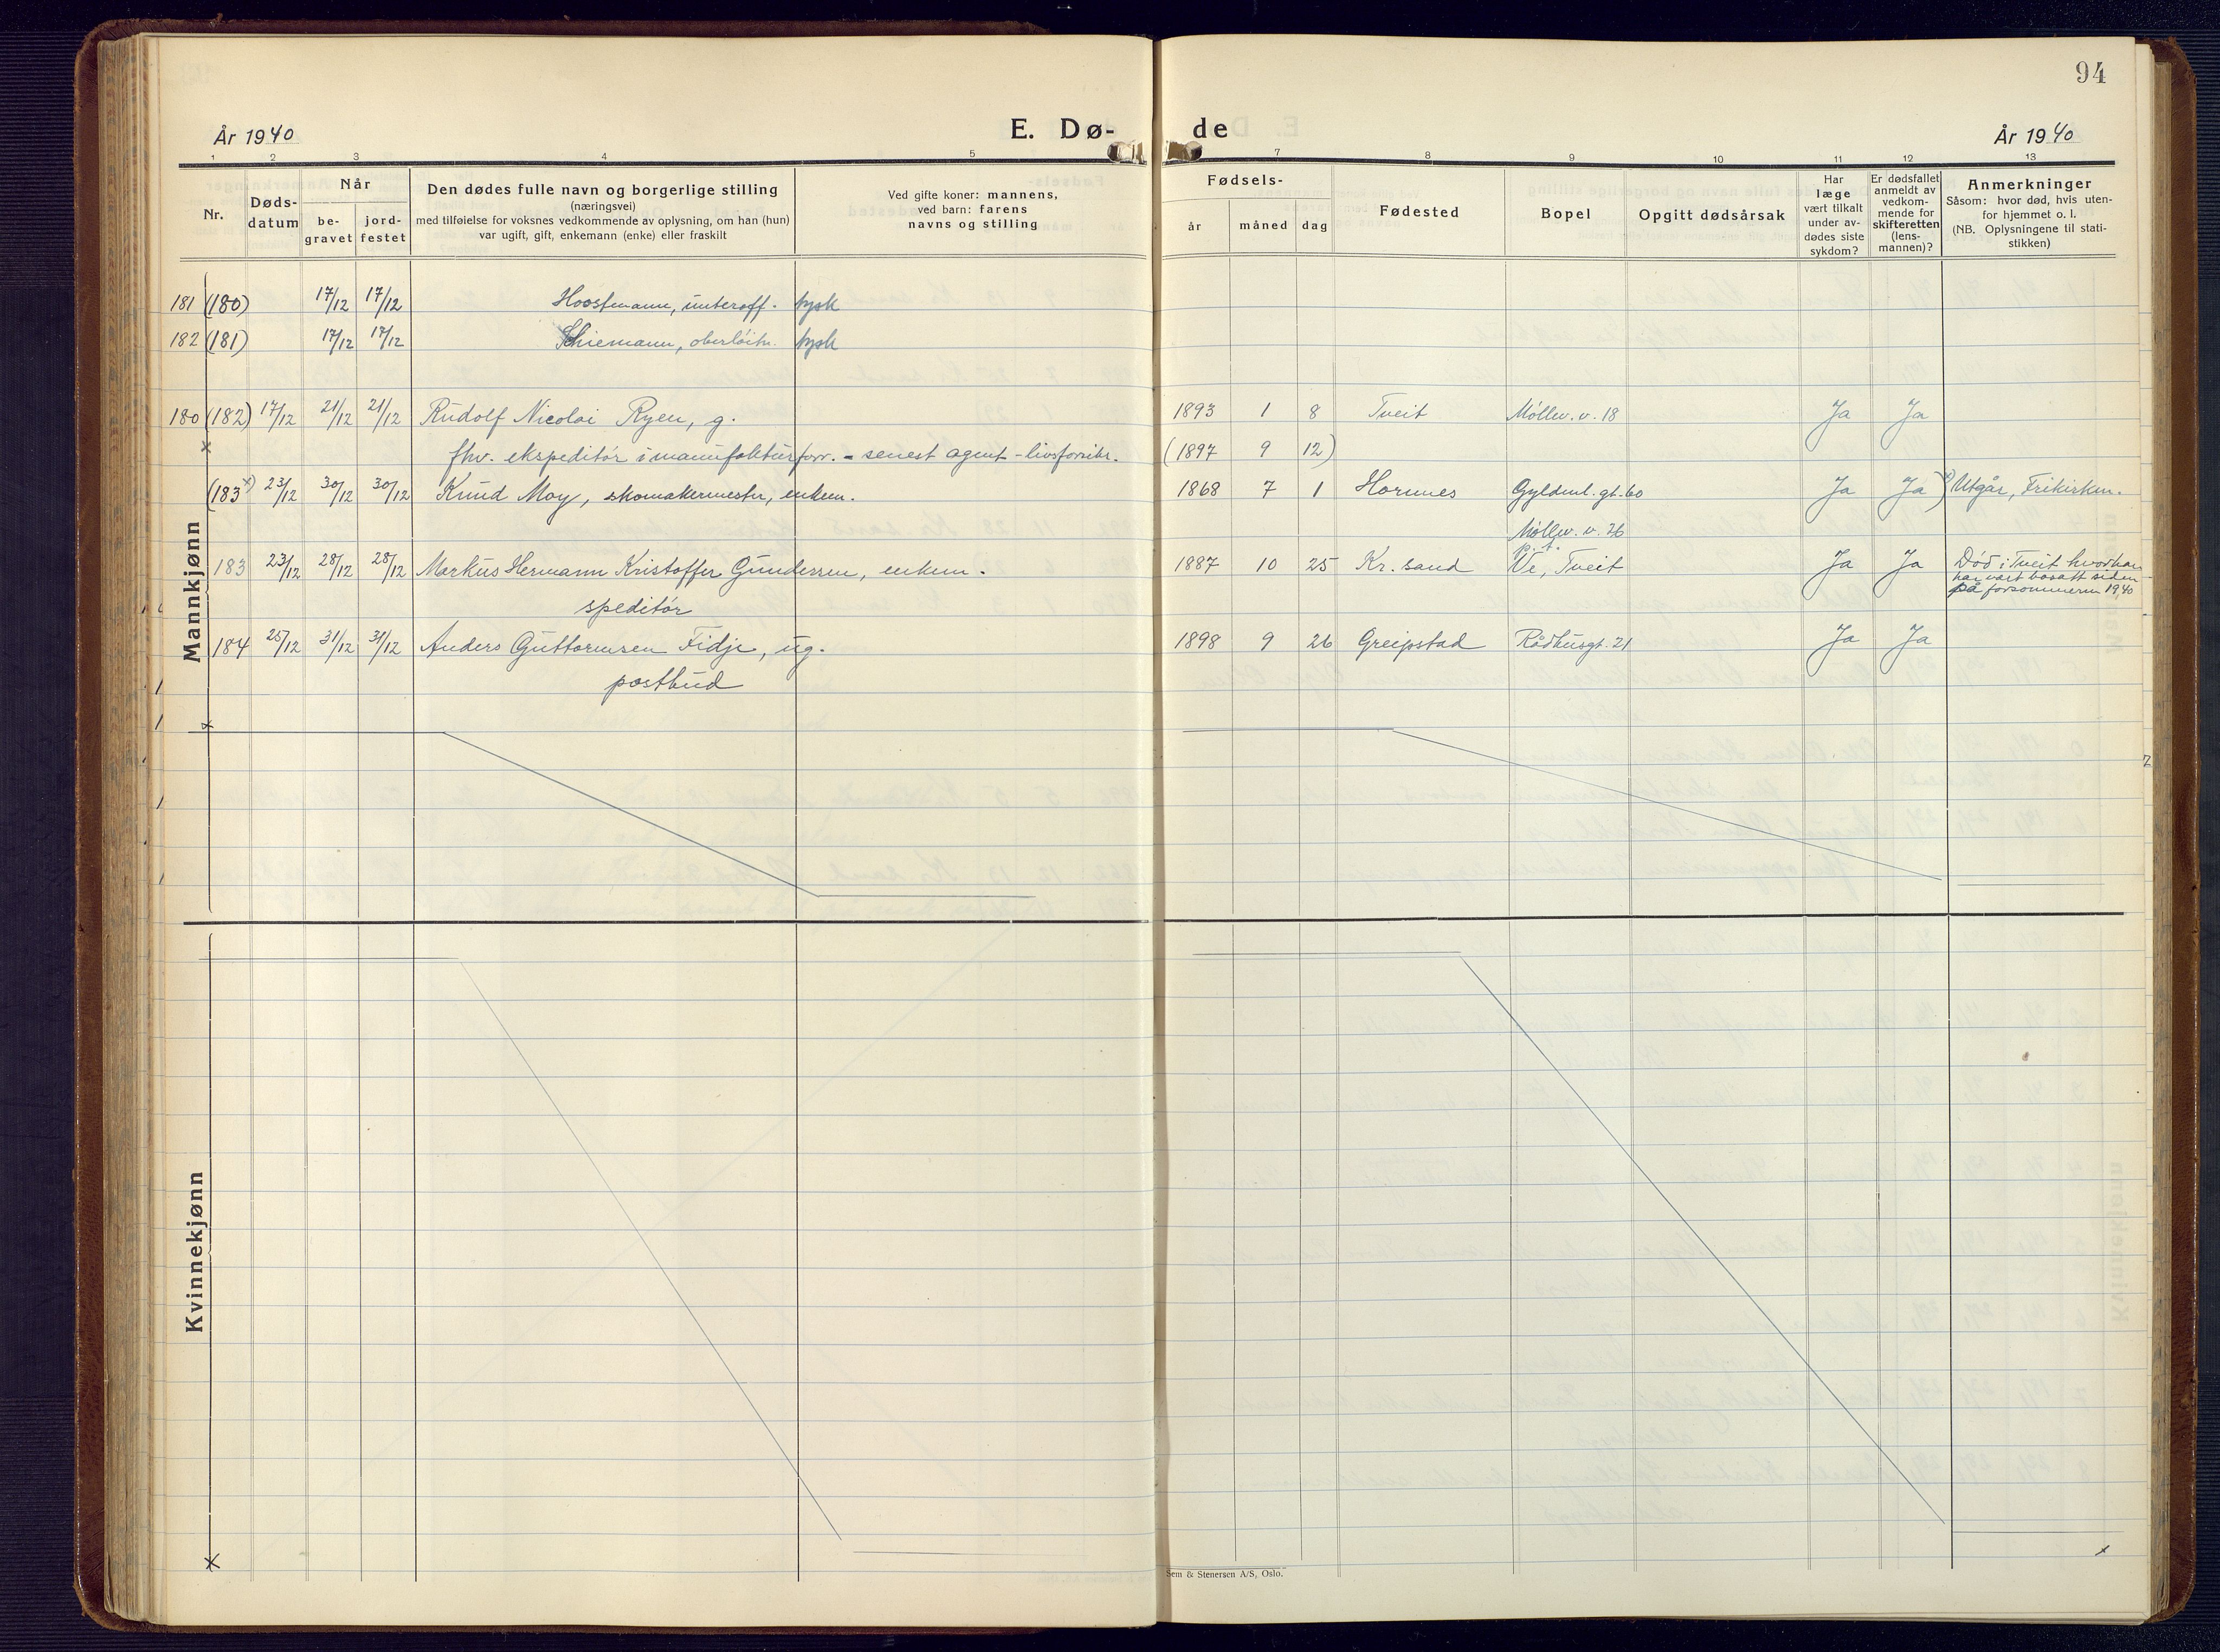 94
År 1940
E. Dø-
de
År 1940
1 2 3 4 5
7 8 9 10 11 12 13
Nr.
Døds-
datum
Når
be-
gravet
jord-
festet
Den dødes fulle navn og borgerlige stilling
(næringsvei)
med tilføielse for voksnes vedkommende av oplysning, om han (hun)
var ugift, gift, enkemann (enke) eller fraskilt
Ved gifte koner: mannens,
ved barn: farens
navns og stilling
Fødsels-
år
måned
dag
Fødested
Bopel
Opgitt dødsårsak
Har
læge
vært tilkalt
under av-
dødes siste
sykdom?
Er dødsfallet
anmeldt av
vedkom-
mende for
skifteretten
(lens-
mannen)?
Anmerkninger
Såsom: hvor død, hvis uten-
for hjemmet o. l.
(NB. Oplysningene til stati-
stikken)
181 (180) 17/12 17/12 Hoostmann, unteroff. tysk
182 (181) 17/12 17/12 Schiemann, oberløitn. tysk
180 (182) 17/12 21/12 21/12 Rudolf Nicolai Ryen, g. 1893 1 8 Tveit Møllev. v. 18 Ja Ja
x fhv. ekspeditør i manufakturforr. - senest agent - livsforsikr. (1897 9 12)
(183x) 23/12 30/12 30/12 Knud Moy, skomakermester, enkem. 1868 7 1 Hornnes Gyldenl. gt. 60 Ja Ja x) Utgår, Frikirken.
Møllev. v. 26
p. t.
183 23/12 28/12 28/12 Markus Hermann Kristoffer Gundersen, enkem. 1887 10 25 Kr. sand Ve, Tveit Ja Ja Død i Tveit hvor han
har vært bosatt siden
på forsommeren 1940
speditør
184 25/12 31/12 31/12 Anders Guttormsen Fidje, ug. 1898 9 26 Greipstad Rådhusgt. 21 Ja Ja
postbud
Mannkjønn
Kvinnekjønn
Sem & Stenersen A/S, Oslo.